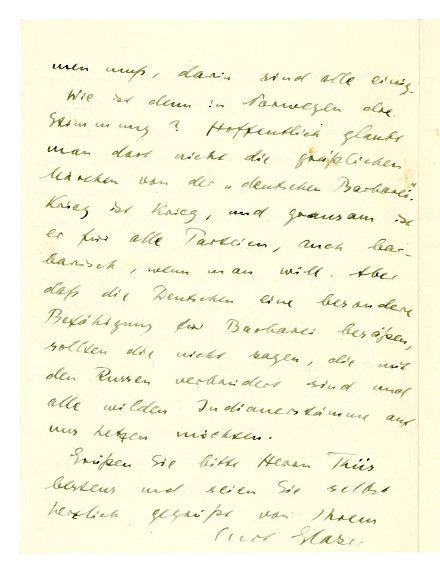 men muß, darin sind alle einig.
Wie ist denn in Norwegen die
Stimmung? Hoffentlich glaubt
man dort nicht die gräßlichen
Märchen von der „deutschen Barbarei".
Krieg ist Krieg, und grausam ist
er für alle Parteien, auch bar-
barisch, wenn man will. Aber
daß die Deutschen eine besondere
Befähigung für Barbarei besäßen,
sollten die nicht sagen, die mit
den Russen verbündet sind und
alle wilden Indianerstämme auf
uns hetzen möchten.
Grüßen Sie bitte Herrn Thiis
bestens und seien Sie selbst
herzlich gegrüßt von Ihrem
Curt Glaser